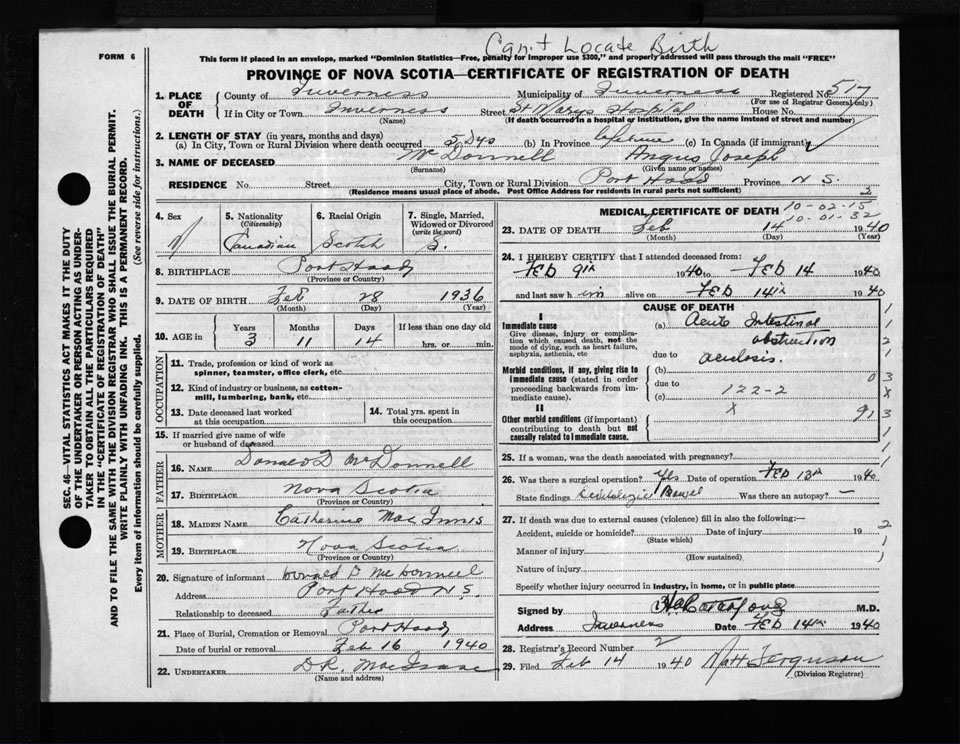 Can't Locate Birth
FORM 6
This form if placed in an envelope, marked "Dominion Statistics—Free, penalty for improper use $300," and properly addressed will pass through the mail "FREE"
PROVINCE OF NOVA SCOTIA—CERTIFICATE OF REGISTRATION OF DEATH
1. PLACE OF DEATH County of Inverness Municipality of Inverness Registered No. 517
(For use of Registrar General only)
If in City or Town Inverness Street St Marys Hospital House No.
(Name) (If death occurred in a hospital or institution, give the name instead of street and number)
2. LENGTH OF STAY (in years, months and days)
(a) In City, Town or Rural Division where death occurred 5 Dys (b) In Province lifetime (c) In Canada (if immigrant)
3. NAME OF DECEASED McDonnell Angus Joseph
(Surname) (Given name or names)
RESIDENCE No. Street City, Town or Rural Division Port Hood Province N S.
(Residence means usual place of abode. Post Office Address for residents in rural parts not sufficient) 3
4. Sex M
5. Nationality (Citizenship) Canadian
6. Racial Origin Scotch
7. Single, Married, Widowed or Divorced (write the word) S.
8. BIRTHPLACE Port Hood
(Province or Country)
9. DATE OF BIRTH Feb 28 1936
(Month) (Day) (Year)
10. AGE in Years 3 Months 11 Days 14 If less than one day old hrs. or min.
OCCUPATION
11. Trade, profession or kind of work as spinner, teamster, office clerk, etc.
12. Kind of industry or business, as cotton-mill, lumbering, bank, etc.
13. Date deceased last worked at this occupation
14. Total yrs. spent in this occupation
15. If married give name of wife or husband of deceased
FATHER
16. NAME Donald D McDonnell
17. BIRTHPLACE Nova Scotia
(Province or Country)
MOTHER
18. MAIDEN NAME Catherine MacInnis
19. BIRTHPLACE Nova Scotia
(Province or Country)
20. Signature of informant Donald D McDonnell
Address Port Hood N.S.
Relationship to deceased Father
21. Place of Burial, Cremation or Removal Port Hood
Date of burial or removal Feb 16 1940
22. UNDERTAKER D.R. MacIsaac
(Name and address)
MEDICAL CERTIFICATE OF DEATH
10-02-15
10-01-32
23. DATE OF DEATH Feb 14 1940
(Month) (Day) (Year)
24. I HEREBY CERTIFY that I attended deceased from:
FEB 9th 1940 to FEB 14 1940
and last saw him alive on FEB 14th 1940
CAUSE OF DEATH
I
Immediate cause
Give disease, injury or complication which caused death, not the mode of dying, such as heart failure, asphyxia, asthenia, etc
(a) Acute Intestinal obstruction
due to acidosis.
Morbid conditions, if any, giving rise to immediate cause (stated in order proceeding backwards from immediate cause).
(b)
due to 122-2
(c)
II
Other morbid conditions (if important) contributing to death but not causally related to immediate cause.
X
913
25. If a woman, was the death associated with pregnancy?
26. Was there a surgical operation? Yes Date of operation FEB 13th 1940
State findings Bowel Was there an autopsy? —
27. If death was due to external causes (violence) fill in also the following:—
Accident, suicide or homicide? Date of injury 19
(State which)
Manner of injury
(How sustained)
Nature of injury
Specify whether injury occurred in industry, in home, or in public place
Signed by M.D.
Address Inverness Date FEB 14th 1940
28. Registrar's Record Number 2
29. Filed Feb 14 1940 Matt Ferguson
(Division Registrar)
SEC. 46—VITAL STATISTICS ACT MAKES IT THE DUTY
OF THE UNDERTAKER OR PERSON ACTING AS UNDER-
TAKER TO OBTAIN ALL THE PARTICULARS REQUIRED
IN THE "CERTIFICATE OF REGISTRATION OF DEATH"
AND TO FILE THE SAME WITH THE DIVISION REGISTRAR WHO SHALL ISSUE THE BURIAL PERMIT.
WRITE PLAINLY WITH UNFADING INK. THIS IS A PERMANENT RECORD.
Every item of information should be carefully supplied. (See reverse side for instructions.)